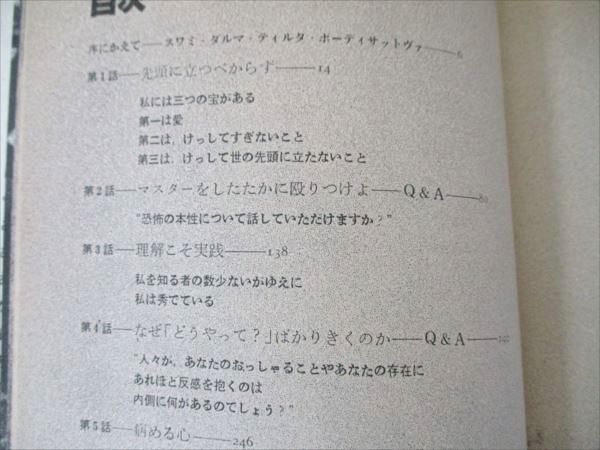 目次
序にかえて——スワミ・ダルマ・ティルタ・ボーディサットヴァ——6
第1話——先頭に立つべからず——14
私には三つの宝がある
第一は愛
第二は，けっしてすぎないこと
第三は，けっして世の先頭に立たないこと
第2話——マスターをしたたかに殴りつけよ——Q & A——80
“恐怖の本性について話していただけますか？”
第3話——理解こそ実践——138
私を知る者の数少ないがゆえに
私は秀でている
第4話——なぜ「どうやって？」ばかりきくのか——Q & A——
“人々が，あなたのおっしゃることやあなたの存在に
あれほど反感を抱くのは
内側に何があるのでしょう？”
第5話——病める心——246